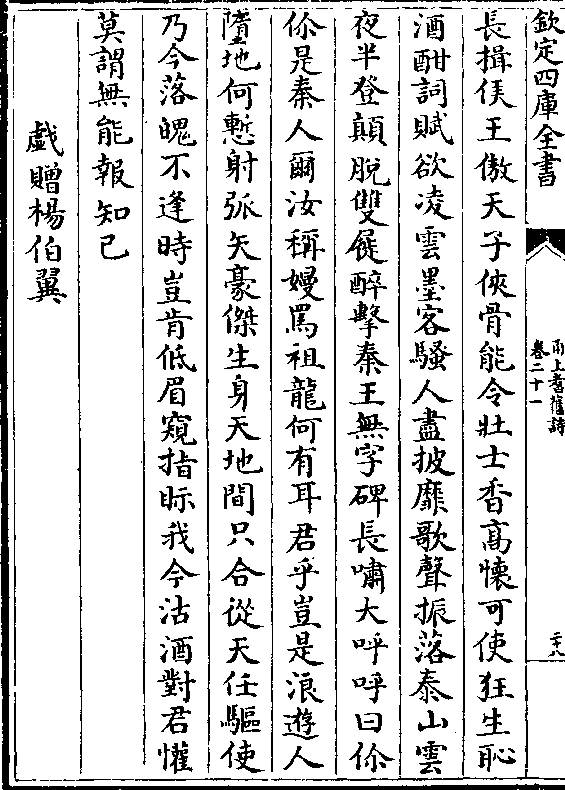 欽定四庫全書
甬上耆舊詩
卷二十一
二十八
長揖侯王傲天子俠骨能令壯士香高懷可使狂生恥
酒酣詞賦欲凌雲墨客騷人盡披靡歌聲振落泰山雲
夜半登顛脫雙屣醉擊秦王無字碑長嘯大呼呼曰伱
伱是秦人爾汝稱嫚罵祖龍何有耳君乎豈是浪遊人
墮地何慙射弧矢豪傑生身天地間只合從天任驅使
乃今落魄不逢時豈肯低眉窺指眎我今沽酒對君懽
莫謂無能報知己
戱贈楊伯翼